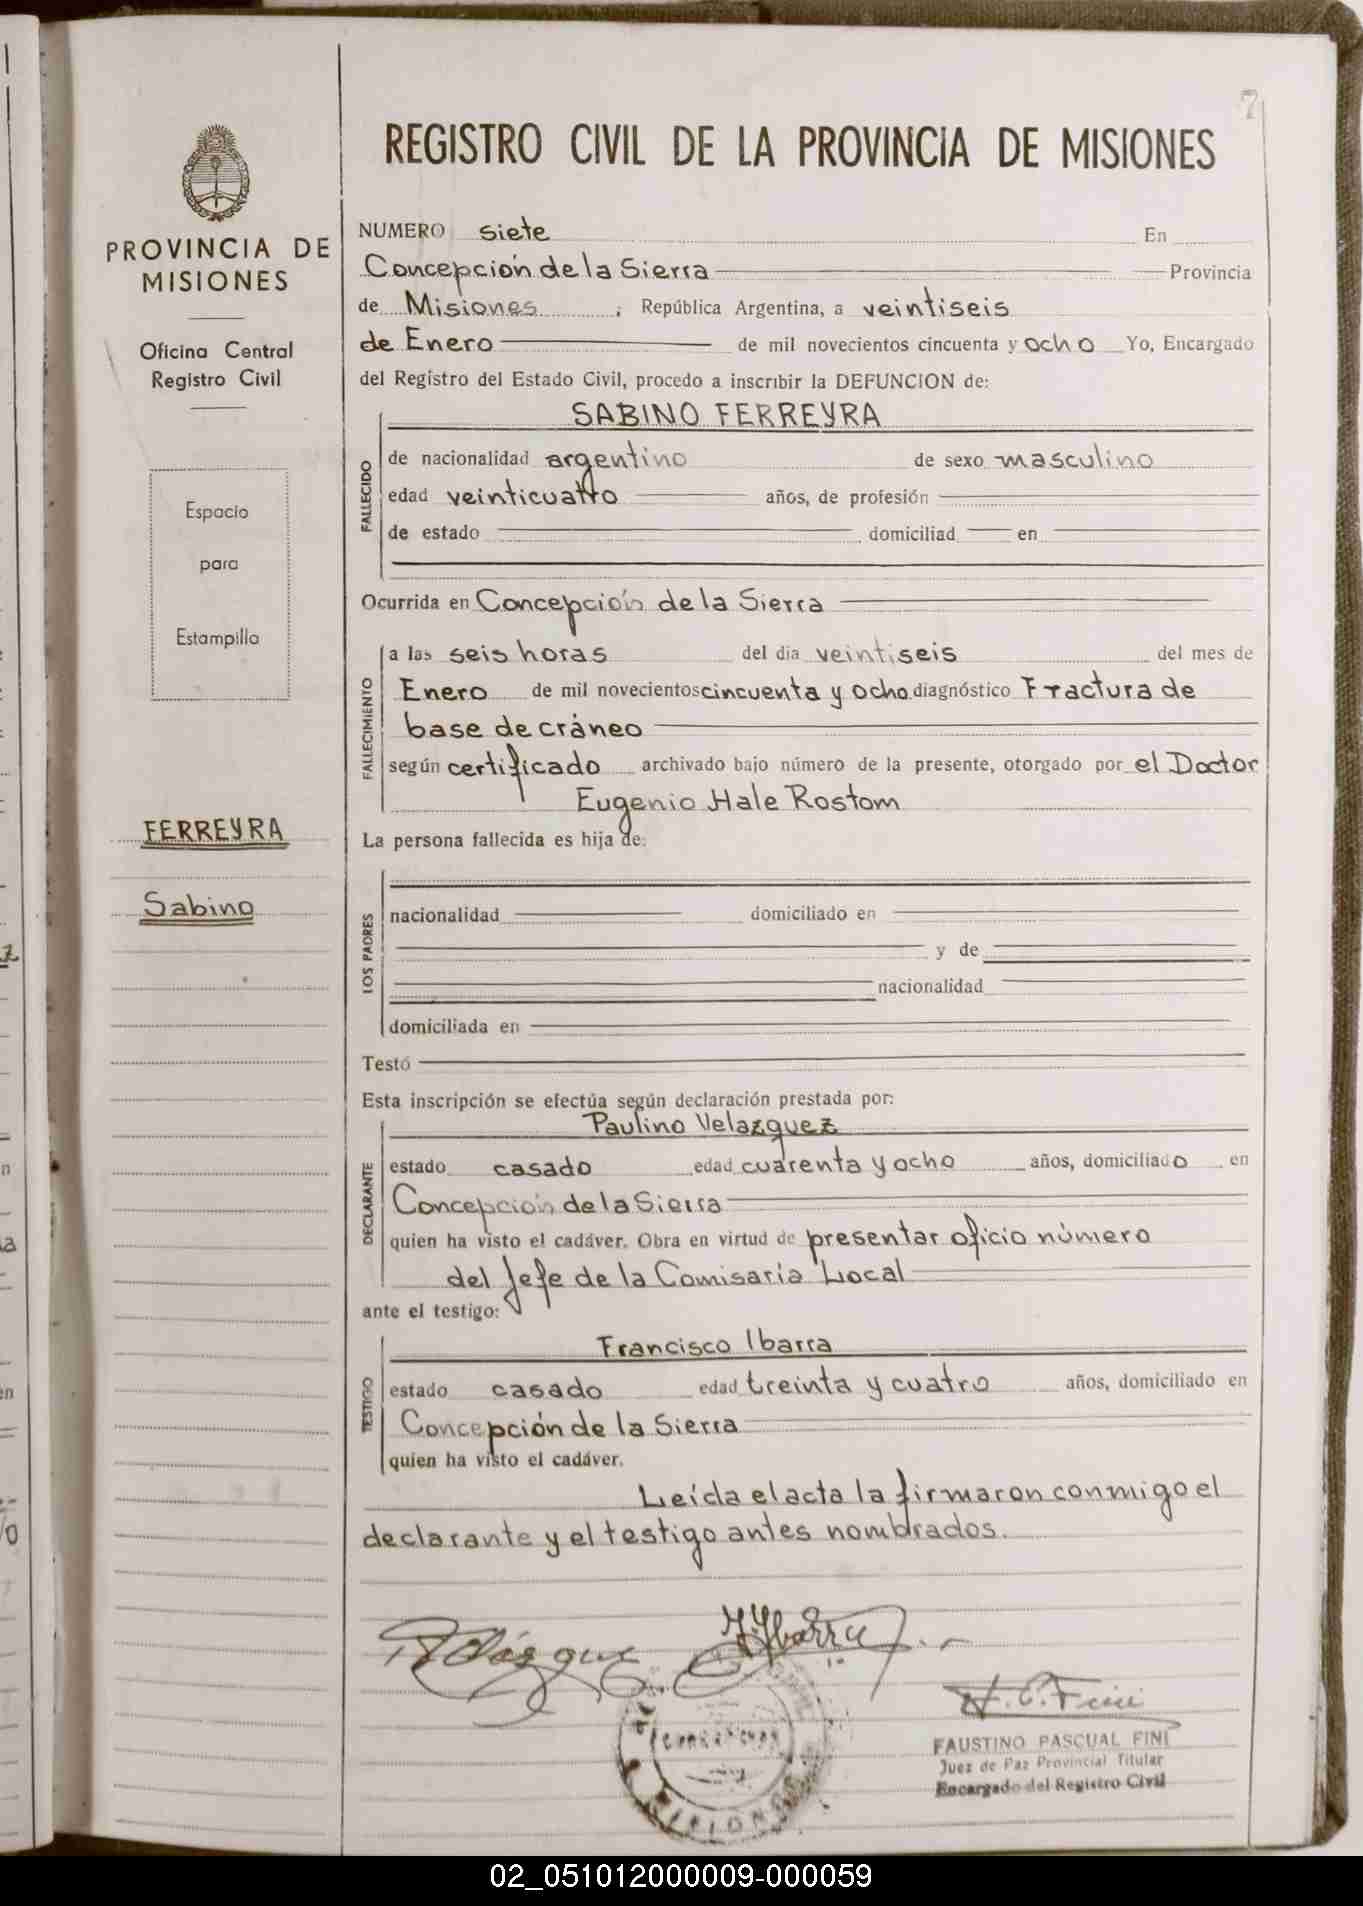 7
REGISTRO CIVIL DE LA PROVINCIA DE MISIONES
PROVINCIA DE
MISIONES
Oficina Central
Registro Civil
Espacio
para
Estampilla
FERREYRA
Sabino
NUMERO siete En
Concepción de la Sierra Provincia
de Misiones, República Argentina, a veintiseis
de Enero de mil novecientos cincuenta y ocho Yo, Encargado
del Registro del Estado Civil, procedo a inscribir la DEFUNCION de:
SABINO FERREYRA
FALLECIDO
de nacionalidad argentino de sexo masculino
edad veinticuatro años, de profesión
de estado domiciliad en
Ocurrida en Concepción de la Sierra
FALLECIMIENTO
a las seis horas del día veintiseis del mes de
Enero de mil novecientos cincuenta y ocho diagnóstico Fractura de
base de cráneo
según certificado archivado bajo número de la presente, otorgado por el Doctor
Eugenio Hale Rostom
La persona fallecida es hija de:
LOS PADRES
nacionalidad domiciliado en
y de
nacionalidad
domiciliada en
Testó
Esta inscripción se efectúa según declaración prestada por:
Paulino Velazquez
DECLARANTE
estado casado edad cuarenta y ocho años, domiciliado en
Concepción de la Sierra
quien ha visto el cadáver. Obra en virtud de presentar oficio número
del Jefe de la Comisaría Local
ante el testigo:
Francisco Ibarra
TESTIGO
estado casado edad treinta y cuatro años, domiciliado en
Concepción de la Sierra
quien ha visto el cadáver.
Leída el acta la firmaron conmigo el
declarante y el testigo antes nombrados.
FAUSTINO PASCUAL FINI
Juez de Paz Provincial Titular
Encargado del Registro Civil
MISIONES
02_051012000009-000059